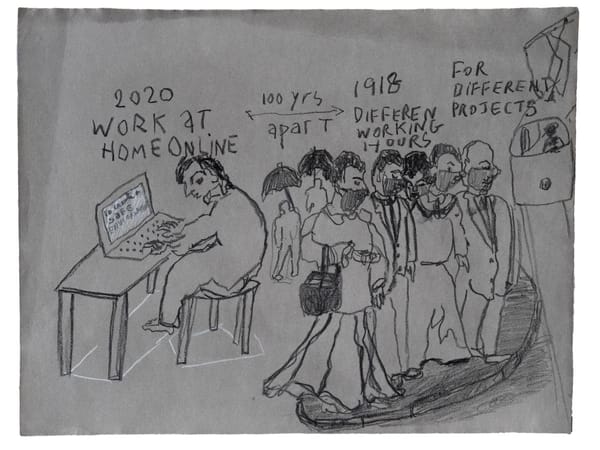 2020
WORK AT
HOME ONLINE
100 yrs
apart
1918
DIFFEREN
WORKING
HOURS
FOR
DIFFERENT
PROJECTS
SAFE